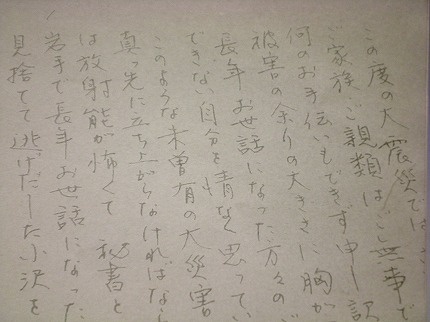 この度の大震災では
ご家族ご親類はご無事で
何のお手伝いもできず申し訳
被害の余りの大きさに胸が
長年お世話になった方々の
できない自分を情なく思ってい
このような未曾有の大災害
真っ先に立ち上がらなければなら
は放射能が怖くて 秘書と
岩手で長年お世話になった
見捨てて逃げだした小沢を